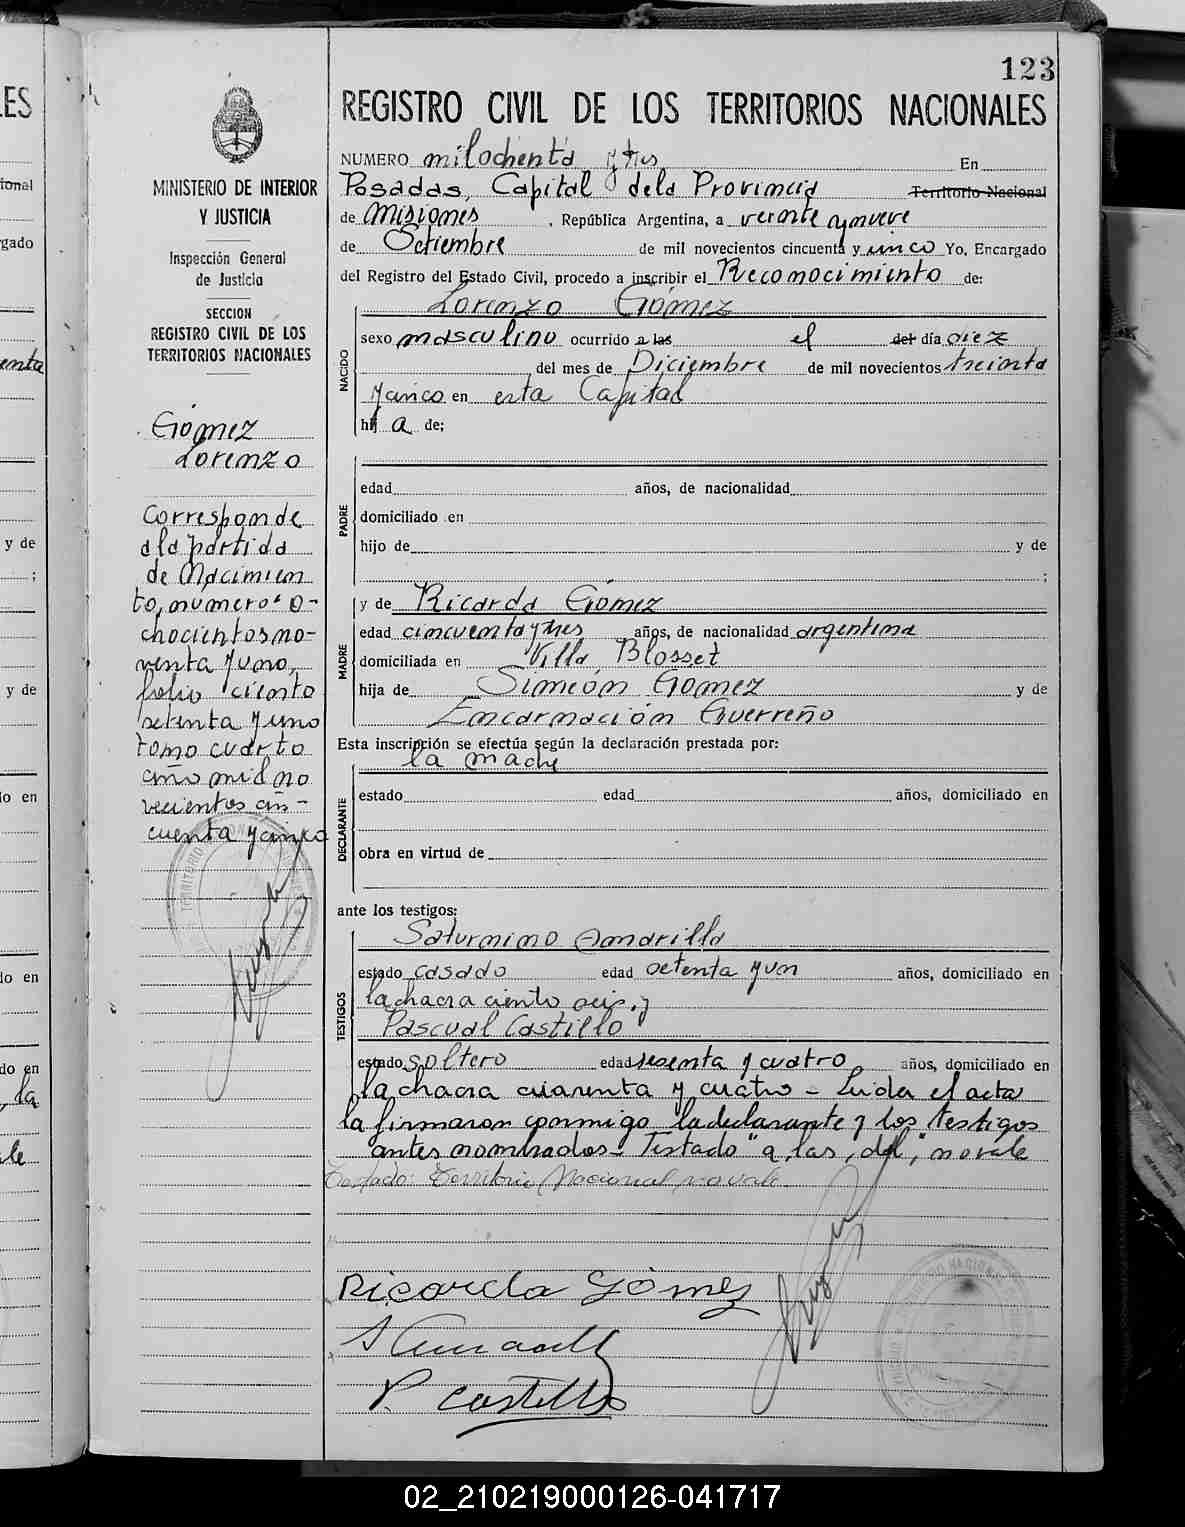 123
REGISTRO CIVIL DE LOS TERRITORIOS NACIONALES
NUMERO milochenta y tres En
Posadas, Capital dela Provincia Territorio Nacional
de Misiones, República Argentina, a veinte y nueve
de Setiembre de mil novecientos cincuenta y cinco Yo, Encargado
del Registro del Estado Civil, procedo a inscribir el Reconocimiento de:
Lorenzo Gómez
NACIDO
sexo masculino ocurrido a las el del día diez
del mes de Diciembre de mil novecientos treinta
y cinco en esta Capital
hij a de:
PADRE
edad años, de nacionalidad
domiciliado en
hijo de y de
;
MADRE
y de Ricarda Gómez
edad cincuenta y tres años, de nacionalidad argentina
domiciliada en Villa Blosset
hija de Simeón Gomez y de
Encarnación Guerreño
Esta inscripción se efectúa según la declaración prestada por:
la madre
DECLARANTE
estado edad años, domiciliado en
obra en virtud de
ante los testigos:
TESTIGOS
Saturnino Amarilla
estado casado edad setenta y un años, domiciliado en
la chacra ciento seis, y
Pascual Castillo
estado soltero edad sesenta y cuatro años, domiciliado en
la chacra cuarenta y cuatro - Leida el acta
la firmaron conmigo la declarante y los testigos
antes nombrados - Testado "a, las, del," no vale
Testado: Territorio Nacional no vale.
Ricarda Gómez
P. Castillo
MINISTERIO DE INTERIOR
Y JUSTICIA
Inspección General
de Justicia
SECCION
REGISTRO CIVIL DE LOS
TERRITORIOS NACIONALES
Gómez
Lorenzo
Corresponde
a la partida
de Nacimien
to, numero o-
chocientos no-
venta y uno,
folio ciento
setenta y uno
tomo cuarto
año mil no
vecientos cin-
cuenta y cinco
ES
ional
gado
enta
y de
;
y de
o en
o en
do en
la
ale
02_210219000126-041717